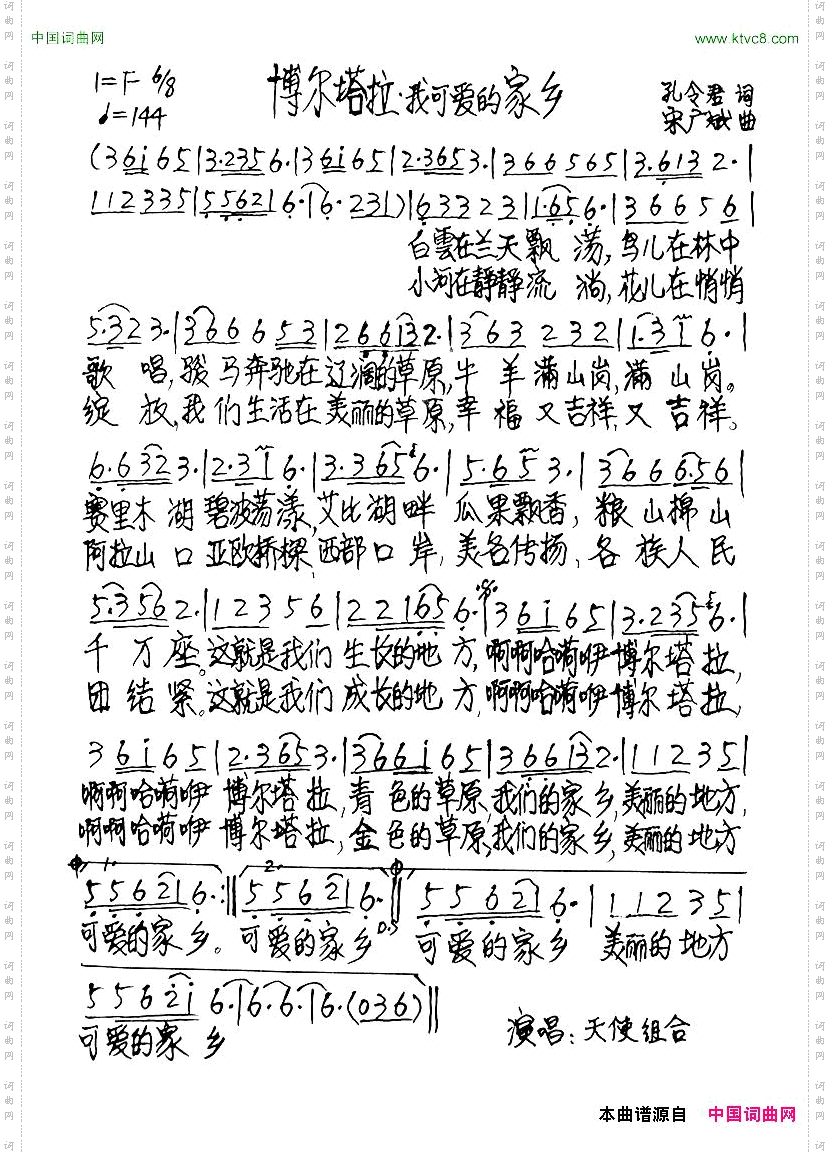 中国词曲网 www.ktvc8.com
1=F 6/8 博尔塔拉·我可爱的家乡 孔令君 词
♩.=144 宋广斌 曲
(36i65|3.2356.|36i65|2.3653.|366565|3.6132.|
112335|556216.|6.231)|633231|1.656.|366656|
白雲在兰天飘荡,鸟儿在林中
小河在静静流淌,花儿在悄悄
5.323.|366653|266132.|363232|1.316.|
歌唱,骏马奔驰在辽阔的草原,牛羊满山岗,满山岗。
绽放,我们生活在美丽的草原,幸福又吉祥,又吉祥。
6.6323.|2.316.|3.3656.|5.653.|3666.56|
赛里木湖碧波荡漾,艾比湖畔瓜果飘香,粮山棉山
阿拉山口亚欧桥樑,西部口岸,美名传扬,各族人民
5.3562.|12356|221656.|36i65|3.2356.|
千万座。这就是我们生长的地方,啊啊哈嗬咿博尔塔拉,
团结紧。这就是我们成长的地方,啊啊哈嗬咿博尔塔拉,
36i65|2.3653.|366i65|366132.|11235|
啊啊哈嗬咿博尔塔拉,青色的草原,我们的家乡,美丽的地方,
啊啊哈嗬咿博尔塔拉,金色的草原,我们的家乡,美丽的地方
1. 2.
556216.:‖556216.‖556216.|11235|
可爱的家乡。可爱的家乡 D.S 可爱的家乡 美丽的地方
5562i6.|6.6.|6.(036)‖
可爱的家乡 演唱:天使组合
本曲谱源自 中国词曲网